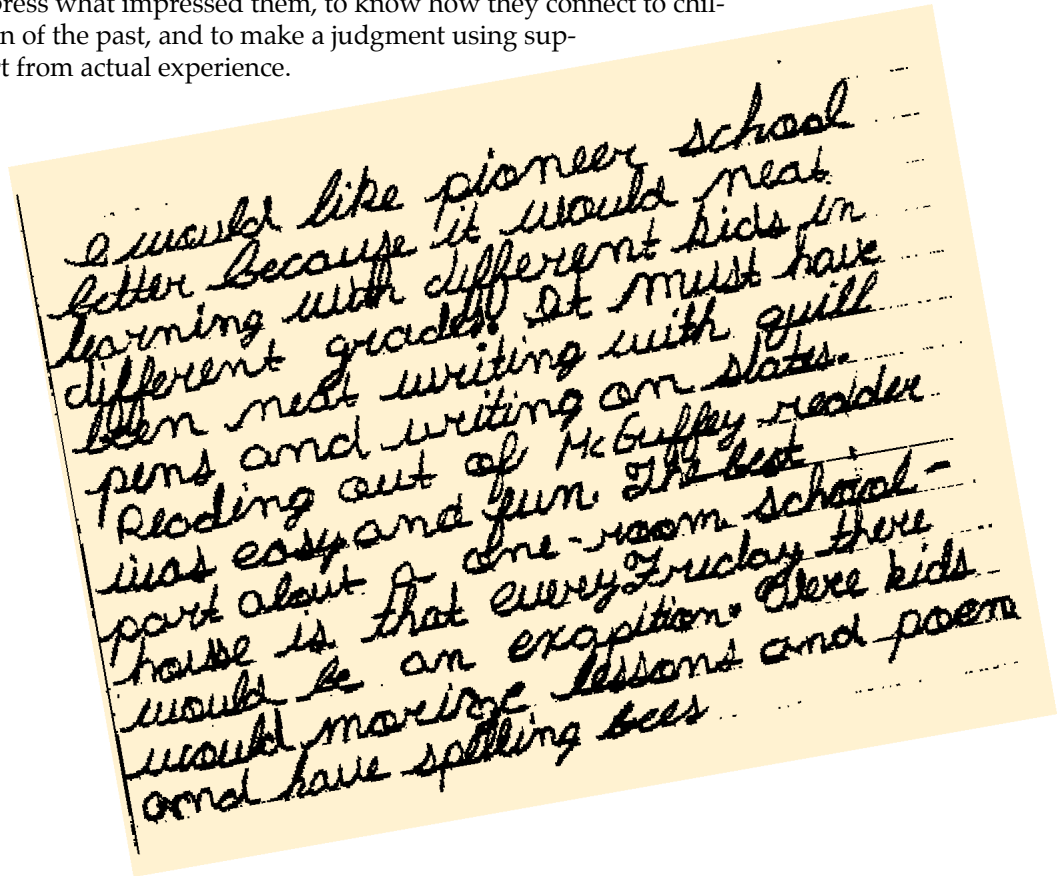 press what impressed them, to know how they connect to chil-
n of the past, and to make a judgment using sup-
t from actual experience.
I would like pioneer school
better because it would neat
learning with different kids in
different grades! It must have
been neat writing with quill
pens and writing on slates.
Reading out of McGuffey reader
was easy and fun. The best
part about A one-room school-
house is that every Friday there
would be an exapition. Here kids
would morize lessons and poem
and have spelling bees